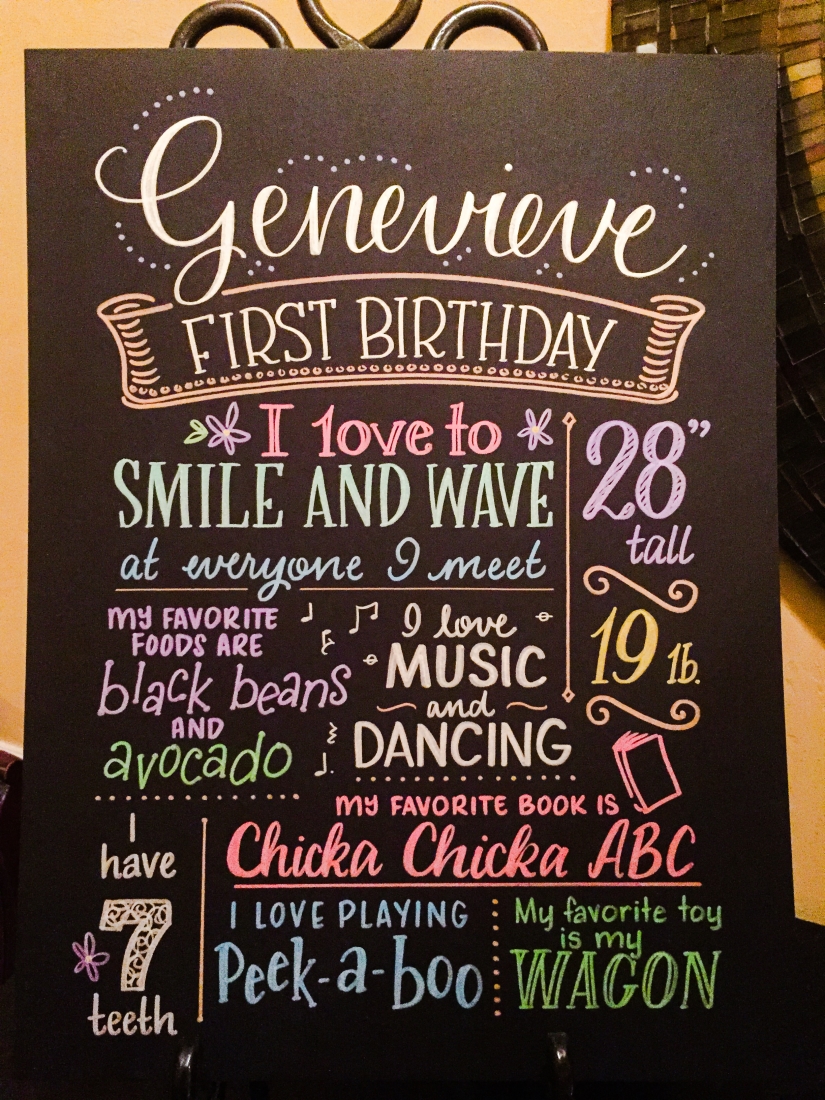 Genevieve
FIRST BIRTHDAY
I love to
SMILE AND WAVE
at everyone I meet
28”
tall
19 lb.
MY FAVORITE
FOODS ARE
black beans
AND
avocado
I love
MUSIC
and
DANCING
MY FAVORITE BOOK IS
Chicka Chicka ABC
I
have
7
teeth
I LOVE PLAYING
Peek-a-boo
My favorite toy
is my
WAGON